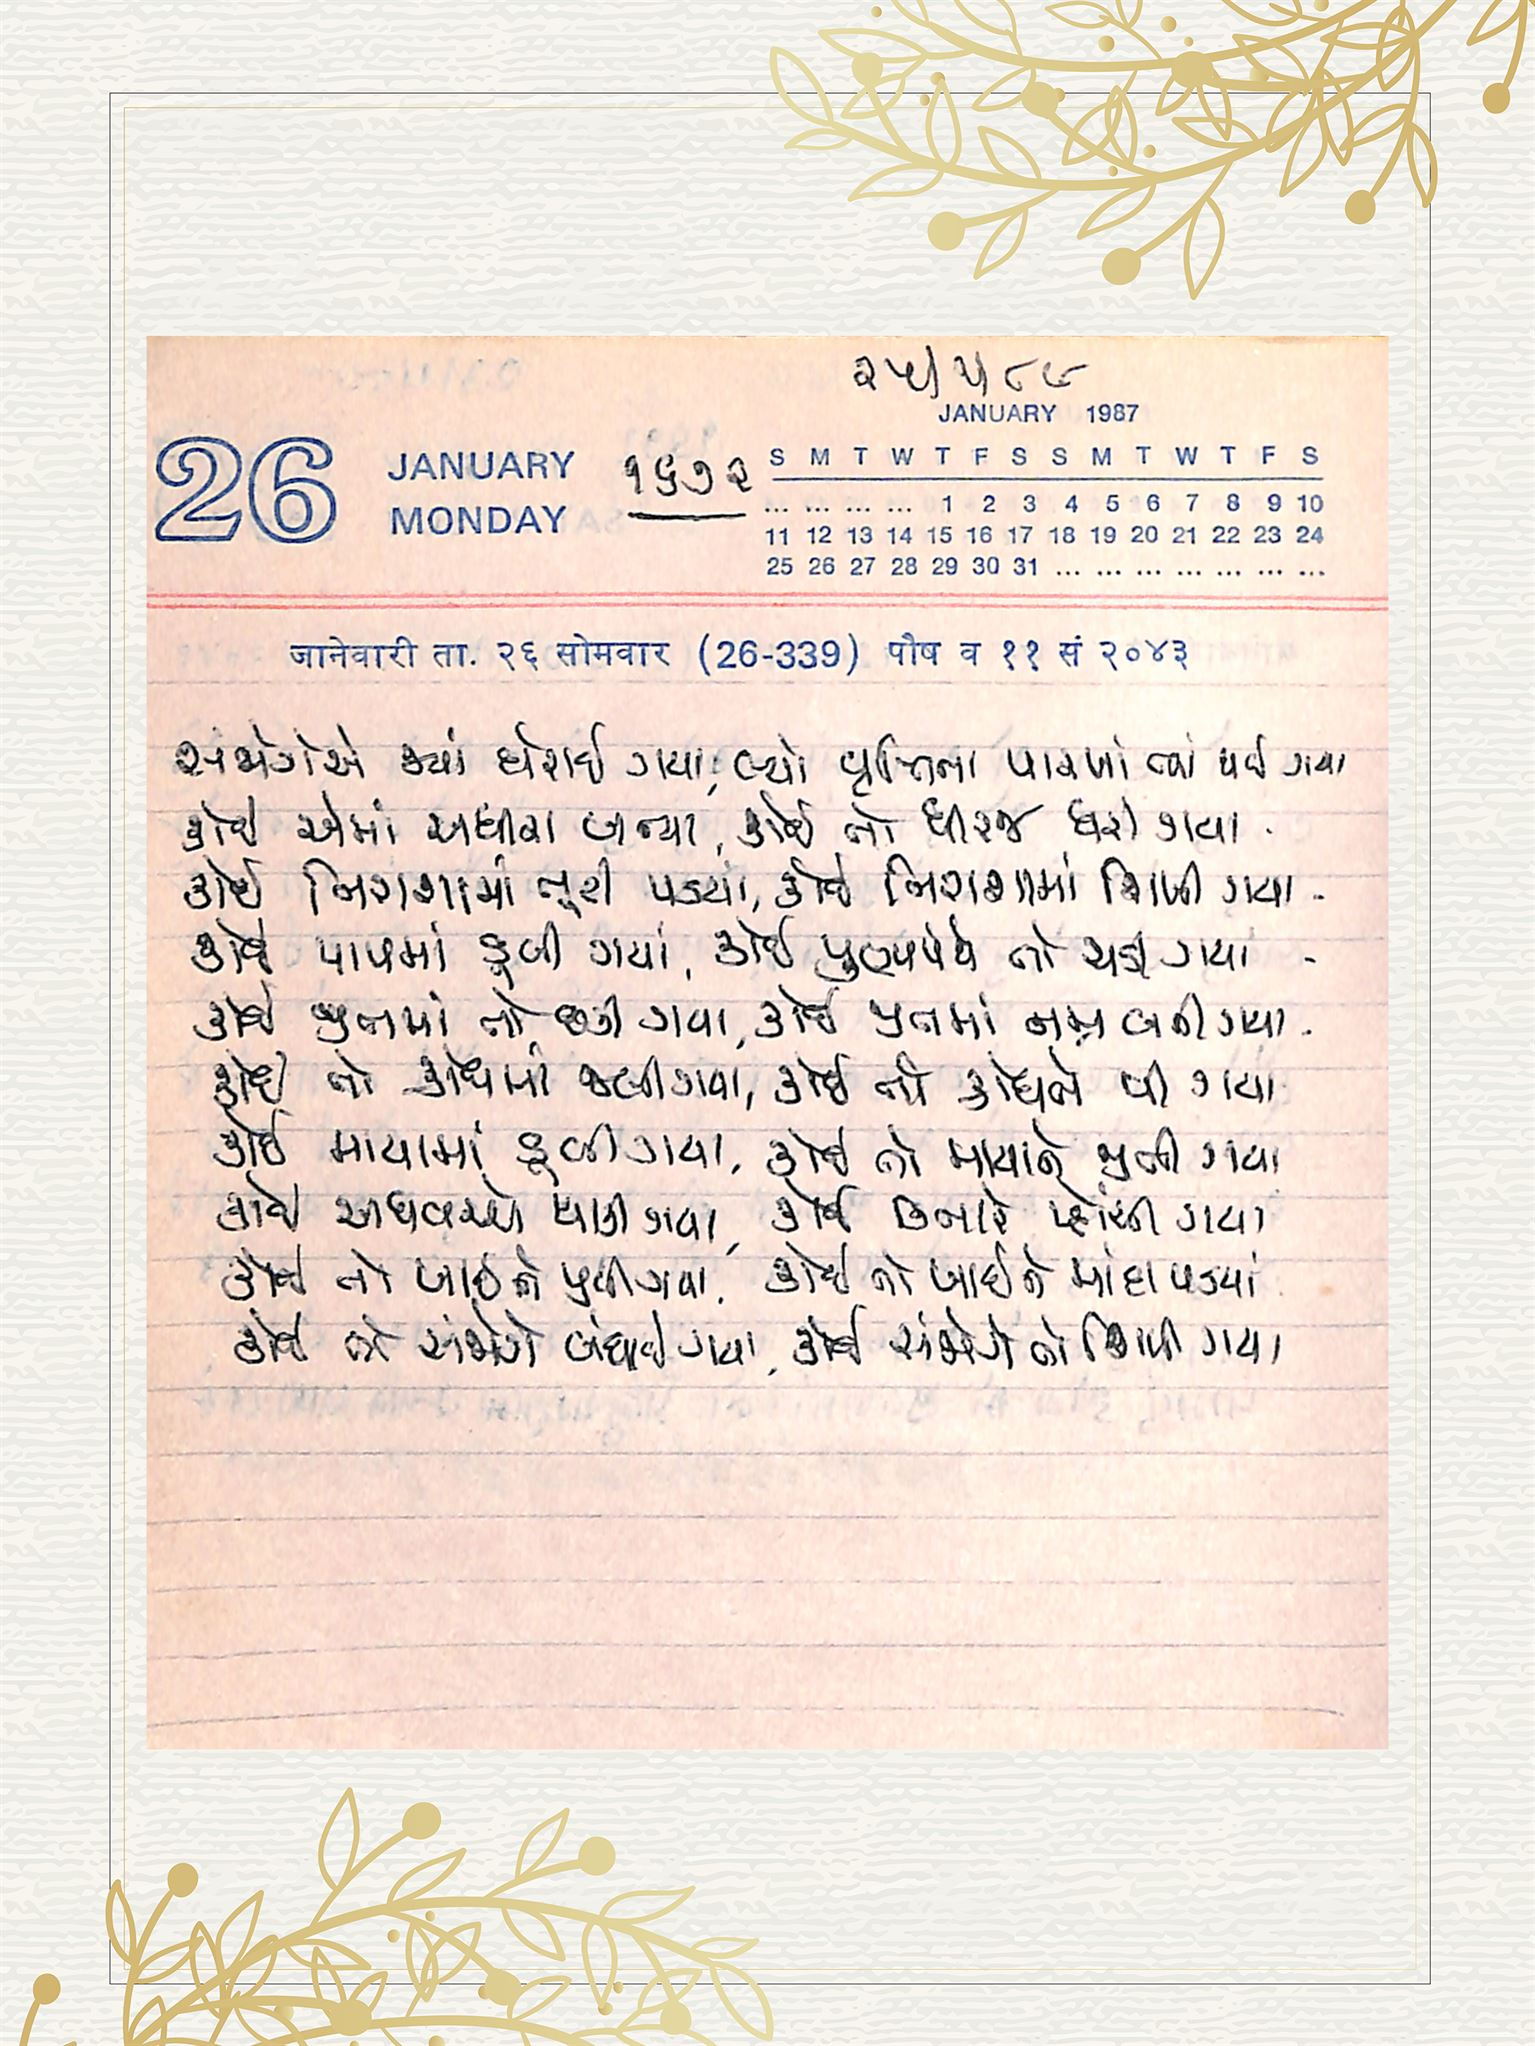 ૨૫/૫/૮૯
JANUARY 1987
26 JANUARY MONDAY ૧૬૭૨
S M T W T F S S M T W T F S
... ... ... ... 1 2 3 4 5 6 7 8 9 10
11 12 13 14 15 16 17 18 19 20 21 22 23 24
25 26 27 28 29 30 31 ... ... ... ... ... ... ...
जानेवारी ता. २६ सोमवार (26-339) पौष व ११ सं २०४३
સંજોગોએ જ્યાં ઘેરાઈ ગયા, વૃત્તિના પારખાં ત્યાં થઈ ગયા
કોઈ એમાં અધીરા બન્યા, કોઈ તો ધીરજ ધરી ગયા.
કોઈ નિરાશામાં તૂટી પડયાં, કોઈ નિરાશામાં ખિલી ગયા.
કોઈ પાપમાં ડૂબી ગયાં, કોઈ પુણ્યપંથે તો ચડી ગયા.
કોઈ જ્ઞાનમાં તો છકી ગયા, કોઈ જ્ઞાનમાં નમ્ર બની ગયા.
કોઈ તો ક્રોધમાં જલી ગયા, કોઈ તો ક્રોધને પી ગયા
કોઈ માયામાં ડૂબી ગયા, કોઈ તો માયાને ભુલી ગયા
કોઈ અધવચ્ચે થાકી ગયા, કોઈ કિનારે પ્હોંચી ગયા
કોઈ તો ખાઈને ફુલી ગયા. કોઈ તો ખાઈને માંદા પડયાં
કોઈ તો સંજોગે બંધાઈ ગયા, કોઈ સંજોગે તો ખિલી ગયા